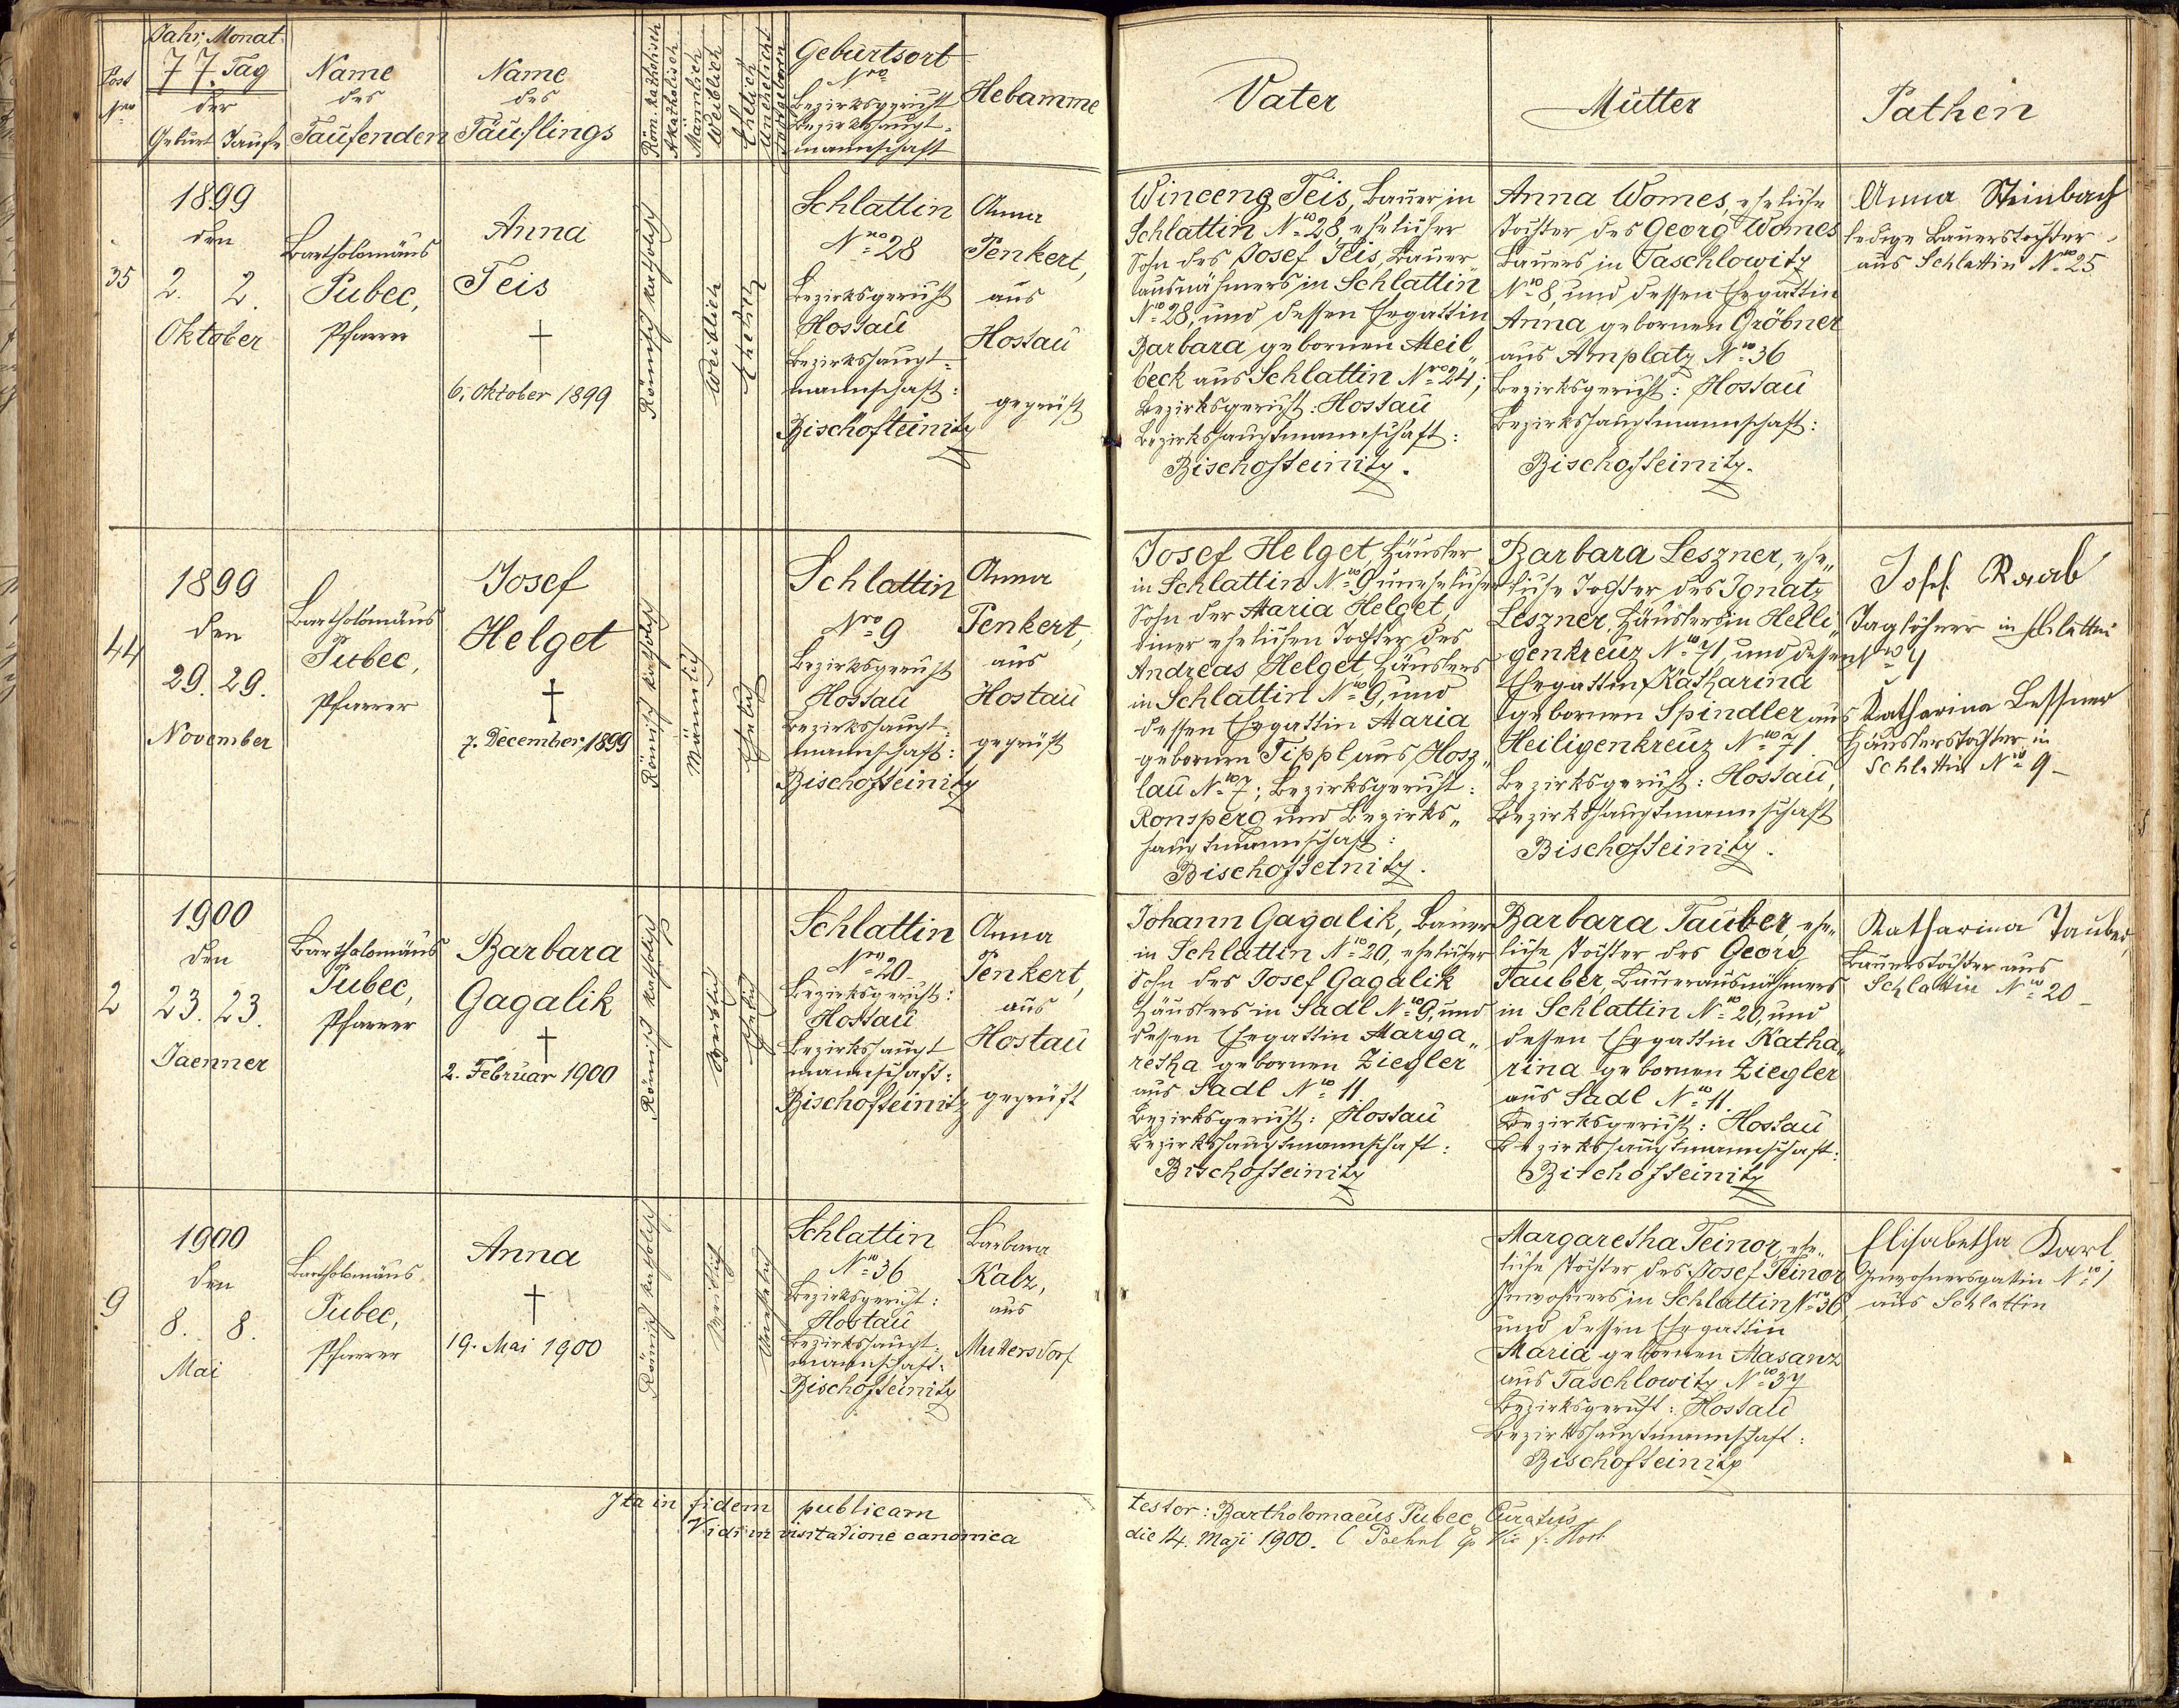 Jahr, Monat
77. Tag
der
Geburt Taufe
Post
Nro
Name
des
Taufenden
Name
des
Täuflings
Röm. katholisch
Akatholisch
Männlich
Weiblich
Ehelich
Unehelich
Todtgeboren
Geburtsort
Nro
Bezirksgericht
Bezirkshaupt-
mannschaft
Hebamme
Vater
Mutter
Pathen
35
1899
den
2. 2.
Oktober
Bartholomäus
Pubec,
Pfarrer
Anna
Teis
†
6. Oktober 1899
Römisch katholisch
Weiblich
Ehelich
Schlattin
Nro 28
Bezirksgericht
Hostau
Bezirkshaupt-
mannschaft:
Bischofteinitz
Anna
Penkert,
aus
Hostau
geprüft
Winceng Teis, Bauer in
Schlattin No 28, ehelicher
Sohn des Josef Teis, Bauer
ausnähmers in Schlattin
No 28, und dessen Ehegattin
Barbara gebornen Meil„
beck aus Schlattin Nro 24;
Bezirksgericht: Hostau
Bezirkshauptmannschaft:
Bischofteinitz.
Anna Womes, eheliche
Tochter des Georg Womes
Bauers in Taschlowitz
No 8, und dessen Ehegattin
Anna gebornen Gröbner
aus Amplatz No 36
Bezirksgericht: Hostau
Bezirkshauptmannschaft:
Bischofteinitz.
Anna Steinbach
ledige Bauerstochter
aus Schlattin No 25
44
1899
den
29. 29.
November
Bartholomäus
Pubec,
Pfarrer
Josef
Helget
†
7. December 1899
Römisch katholisch
Männlich
Ehelich
Schlattin
Nro 9
Bezirksgericht
Hostau
Bezirkshaupt-
mannschaft:
Bischofteinitz
Anna
Penkert,
aus
Hostau
geprüft
Josef Helget, Häusler
in Schlattin No 9 unehelicher
Sohn der Maria Helget,
einer ehelichen Tochter des
Andreas Helget, Häuslers
in Schlattin No 9, und
dessen Ehegattin Maria
gebornen Tippl aus Hosz„
lau No 7; Bezirksgericht:
Ronsperg und Bezirks„
hauptmannschaft:
Bischofteinitz.
Barbara Leszner, ehe„
liche Tochter des Ignatz
Leszner, Häuslers in Heili„
genkreuz No 71 und dessen
Ehegattin Katharina
gebornen Spindler aus
Heiligenkreuz No 71.
Bezirksgericht: Hostau,
Bezirkshauptmannschaft
Bischofteinitz.
Josef Raab
Taglöhner in Schlattin
No 4
Katharina Lessner
Häuslerstochter in
Schlattin No 9 –
2
1900
den
23. 23.
Jaenner
Bartholomäus
Pubec,
Pfarrer
Barbara
Gagalik
†
2. Februar 1900
Römisch katholisch
Weiblich
Ehelich
Schlattin
Nro 20 –
Bezirksgericht:
Hostau
Bezirkshaupt
mannschaft:
Bischofteinitz
Anna
Penkert,
aus
Hostau
geprüft
Johann Gagalik, Bauer
in Schlattin No 20, ehelicher
Sohn des Josef Gagalik
Häuslers in Sadl No 9, und
dessen Ehegattin Marga„
retha gebornen Ziegler
aus Sadl No 11.
Bezirksgericht: Hostau
Bezirkshauptmannschaft:
Bischofteinitz
Barbara Tauber, ehe„
liche Tochter des Georg
Tauber, Bauerausnähmers
in Schlattin No 20, und
dessen Ehegattin Katha„
rina gebornen Ziegler
aus Sadl No 11.
Bezirksgericht: Hostau
Bezirkshauptmannschaft:
Bischofteinitz
Katharina Tauber,
Bauerstochter aus
Schlattin No 20 –
9
1900
den
8. 8.
Mai
Bartholomäus
Pubec,
Pfarrer
Anna
†
19. Mai 1900
Römisch katholisch
Weiblich
Unehelich
Schlattin
No 36
Bezirksgericht:
Hostau
Bezirkshaupt-
mannschaft:
Bischofteinitz
Barbara
Kalz,
aus
Muttersdorf
Margaretha Teinor, ehe„
liche Tochter des Josef Teinor
Inwohners in Schlattin No 36,
und dessen Ehegattin
Maria gebornen Masanz
aus Taschlowitz No 37
Bezirksgericht: Hostau
Bezirkshauptmannschaft:
Bischofteinitz
Elisabetha Karl.
Inwohnersgattin No 1
aus Schlattin
Ita in fidem publicam testor: Bartholomaeus Pubec, Curatus
Vidi in visitatione canonica die 14. Maji 1900.